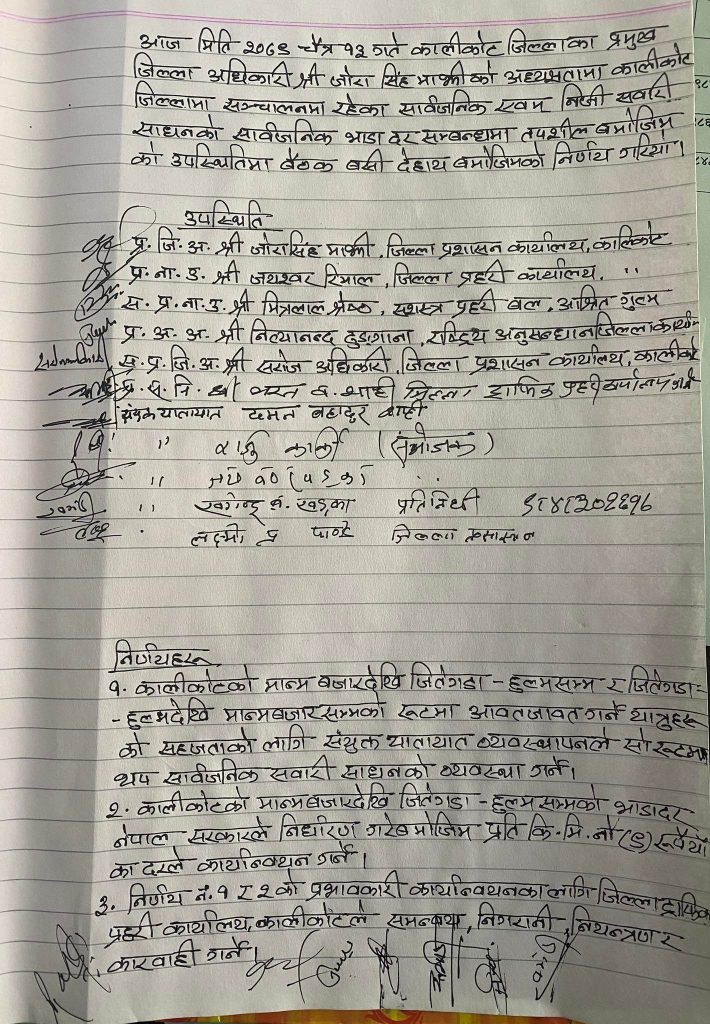 आज मिति २०७९ चैत्र १३ गते कालीकोट जिल्लाका प्रमुख
जिल्ला अधिकारी श्री जोरा सिंह माझी को अध्यक्षतामा कालीकोट
जिल्लामा सञ्चालनमा रहेका सार्वजनिक एवम निजी सवारी
साधनको सार्वजनिक भाडा दर सम्बन्धमा तपशील बमोजिम
को उपस्थितिमा बैठक बसी देहाय बमोजिमको निर्णय गरियो।
उपस्थिति
प्र. जि. अ. श्री जोरासिंह माझी, जिल्ला प्रशासन कार्यालय, कालिकोट
प्र. ना. उ. श्री जयश्वर रिमाल, जिल्ला प्रहरी कार्यालय, "
स. प्र. ना. उ. श्री मित्रलाल श्रेष्ठ, सशस्त्र प्रहरी बल, आश्रित गुल्म
प्र. अ. अ. श्री नित्यानन्द ढुङगाना, राष्ट्रिय अनुसन्धान जिल्ला कार्यालय
स. प्र. जि. अ. श्री सरोज अधिकारी, जिल्ला प्रशासन कार्यालय, कालीकोट
प्र. स. नि. श्री भरत ब. शाही जिल्ला ट्राफिक प्रहरी कार्यालय
यातायात दमन बहादुर शाही
" कार्की (संयोजक)
"
" खगेन्द्र ब. खड्का प्रतिनिधी
लक्ष्मी प्र पाण्डे जिल्ला
निर्णयहरू
१. कालीकोटको मान्म बजारदेखि जितेगडा - हुलमसम्म र जितेगडा -
- हुलमदेखि मान्मबजार सम्मको रूटमा आवतजावत गर्ने यात्रुहरू
को सहजताको लागि संयुक्त यातायात व्यवस्थापनले सो रूटमा
थप सार्वजनिक सवारी साधनको व्यवस्था गर्ने।
२. कालीकोटको मान्मबजारदेखि जितेगडा - हुलम सम्मको भाडादर
नेपाल सरकारले निर्धारण गरे बमोजिम प्रति कि.मि. नौ (९) रूपैयाँ
का दरले कार्यान्वयन गर्ने।
३. निर्णय नं. १ र २ को प्रभावकारी कार्यान्वयनका लागि जिल्ला ट्राफिक
प्रहरी कार्यालय, कालीकोटले समन्वय, निगरानी, नियन्त्रण र
कारवाही गर्ने।